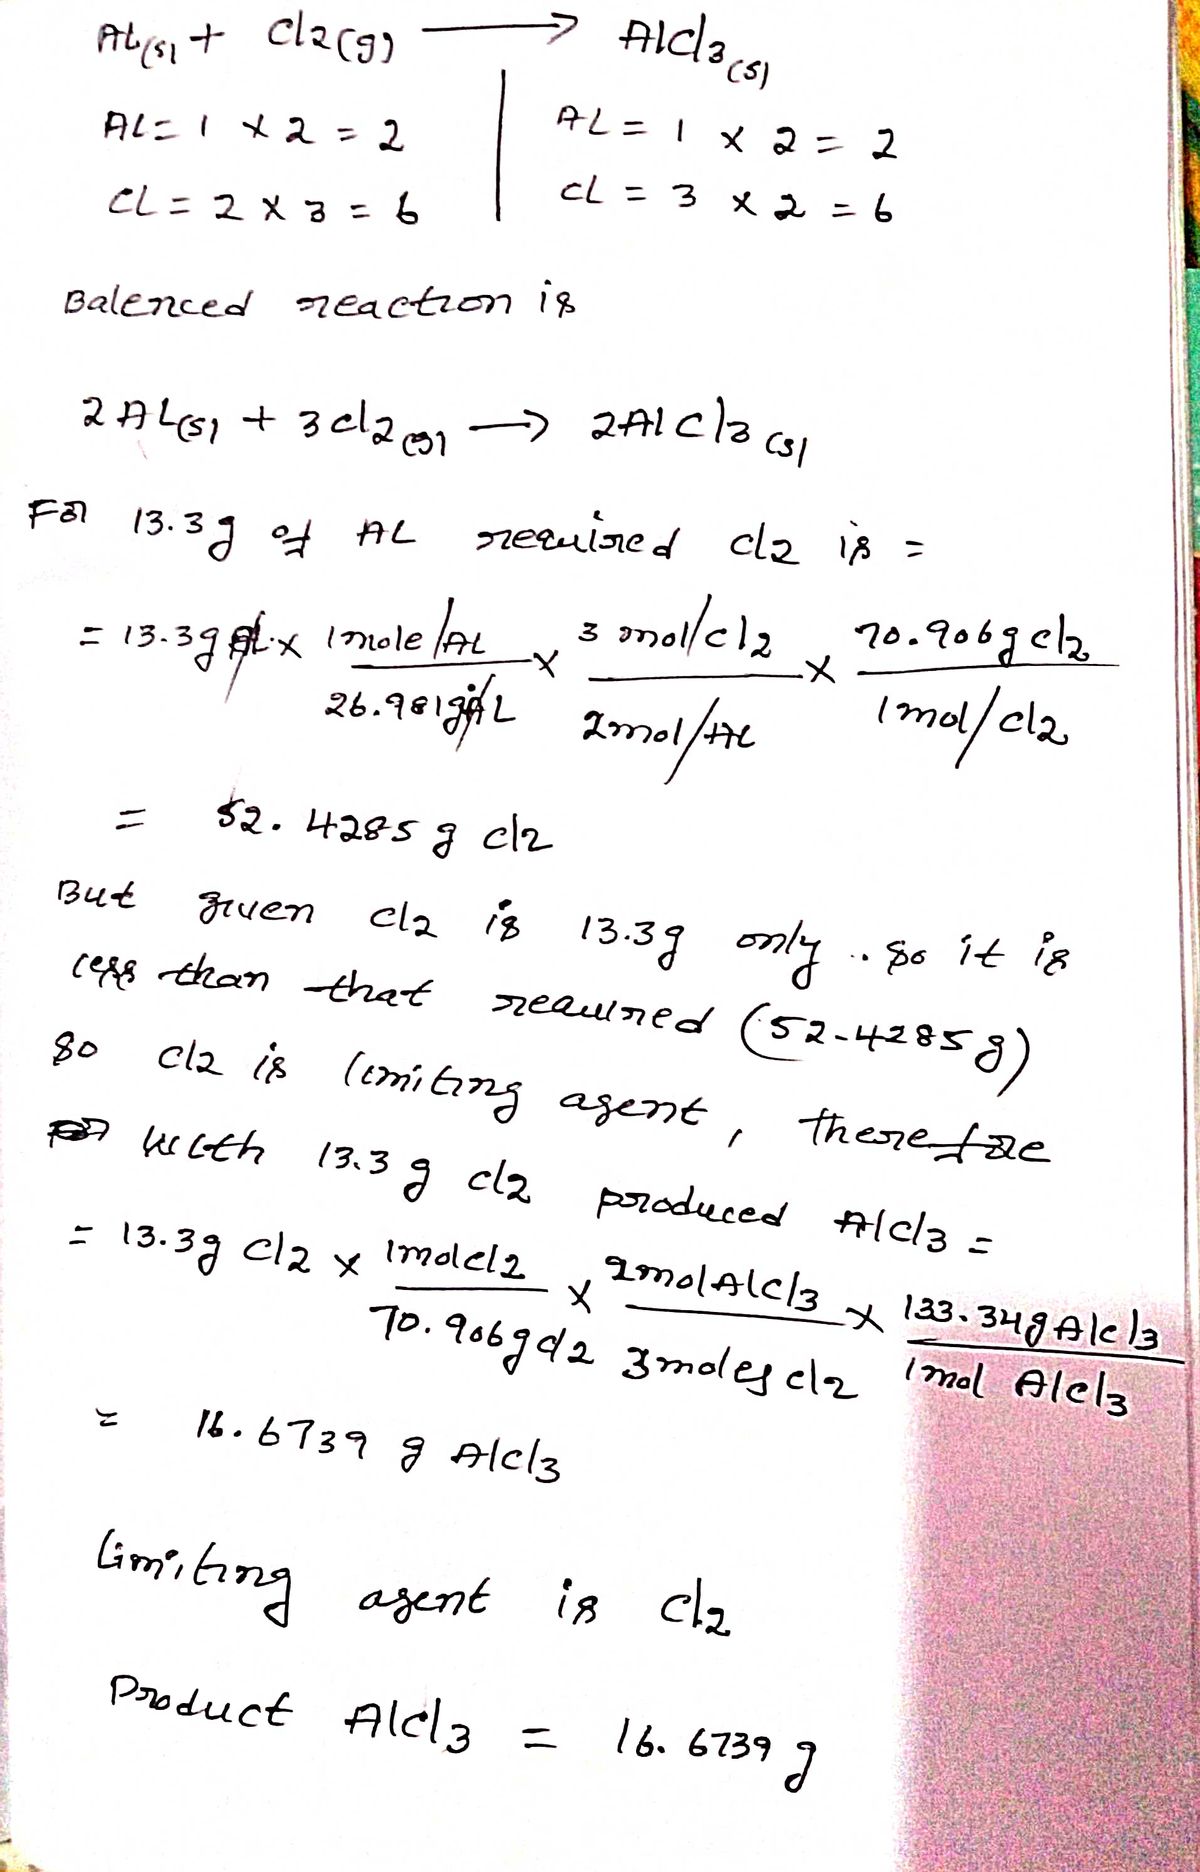 AL(s) + Cl2(g) → AlCl3(s)
AL = 1 × 2 = 2 | AL = 1 × 2 = 2
CL = 2 × 3 = 6 | CL = 3 × 2 = 6
Balenced reaction is
2AL(s) + 3Cl2(g) → 2AlCl3(s)
For 13.3g of AL required Cl2 is =
= 13.3g AL × 1mole/AL / 26.981g AL × 3 mol/cl2 / 2mol/AL × 70.906g cl2 / 1mol/cl2
= 52.4285 g cl2
But given cl2 is 13.3g only.. so it is
less than that required (52.4285g)
so cl2 is limiting agent, therefore
With 13.3g cl2 produced AlCl3 =
= 13.3g Cl2 × 1molcl2 / 70.906gcl2 × 2molAlCl3 / 3moles cl2 × 133.34gAlCl3 / 1mol AlCl3
= 16.6739 g AlCl3
Limiting agent is Cl2
Product AlCl3 = 16.6739 g